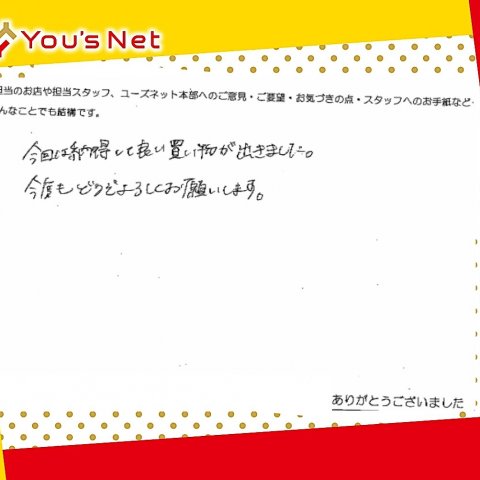 You's Net
担当のお店や担当スタッフ、ユーズネット本部へのご意見・ご要望・お気づきの点・スタッフへのお手紙など
んなことでも結構です。
今回は納得して良い買い物が出きました。
今後もどうぞよろしくお願いします。
ありがとうございました